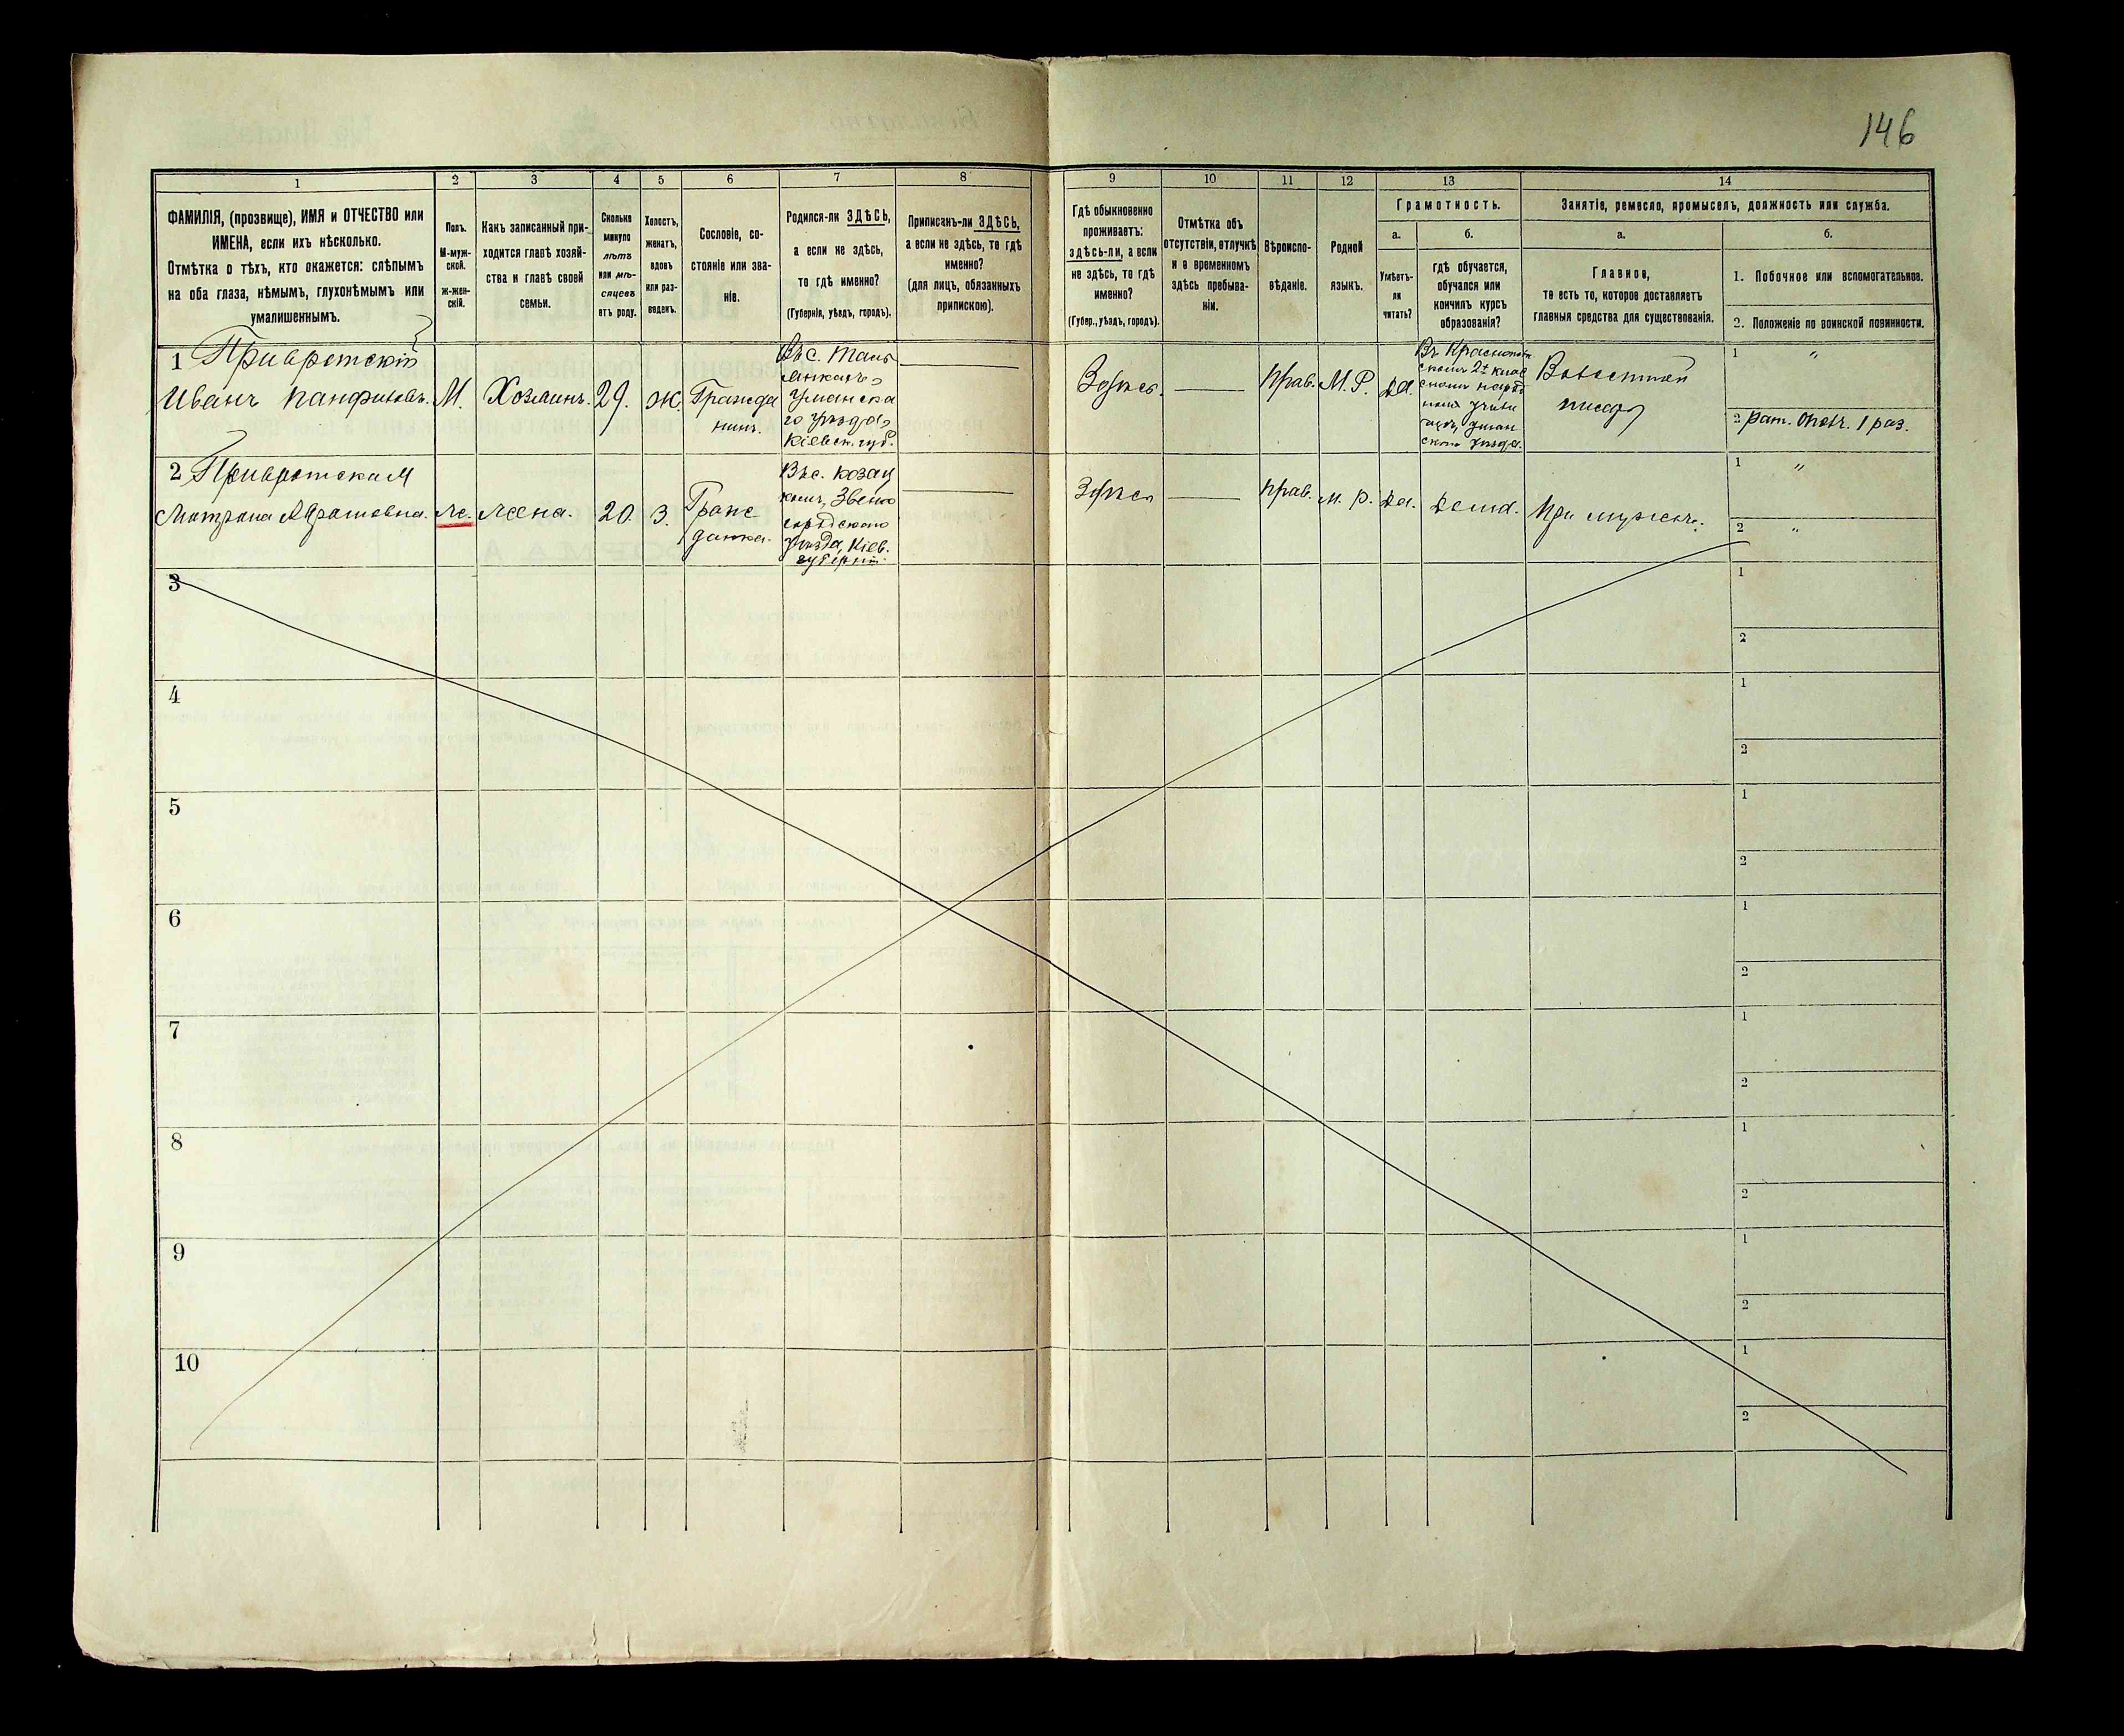 146
1
2
3
4
5
6
7
8
9
10
11
12
13
14
ФАМИЛІЯ, (прозвище), ИМЯ и ОТЧЕСТВО или
ИМЕНА, если ихъ нѣсколько.
Отмѣтка о тѣхъ, кто окажется: слѣпымъ
на оба глаза, нѣмымъ, глухонѣмымъ или
умалишеннымъ.
Полъ.
М-муж-
ской.
ж-жен-
скій.
Какъ записанный при-
ходится главѣ хозяй-
ства и главѣ своей
семьи.
Сколько
минуло
лѣтъ
или мѣ-
сяцевъ
отъ роду.
Холостъ,
женатъ,
вдовъ
или раз-
веденъ.
Сословіе, со-
стояніе или зва-
ніе.
Родился-ли ЗДѢСЬ,
а если не здѣсь,
то гдѣ именно?
(Губернія, уѣздъ, городъ).
Приписанъ-ли ЗДѢСЬ,
а если не здѣсь, то гдѣ
именно?
(для лицъ, обязанныхъ
припискою).
Гдѣ обыкновенно
проживаетъ:
здѣсь-ли, а если
не здѣсь, то гдѣ
именно?
(Губер., уѣздъ, городъ).
Отмѣтка объ
отсутствіи, отлучкѣ
и о временномъ
здѣсь пребыва-
ніи.
Вѣроиспо-
вѣданіе.
Родной
языкъ.
Грамотность.
а.
Умѣетъ-
ли
читать?
б.
гдѣ обучается,
обучался или
кончилъ курсъ
образованія?
Занятіе, ремесло, промыселъ, должность или служба.
а.
Главное,
то есть то, которое доставляетъ
главныя средства для существованія.
б.
1. Побочное или вспомогательное.
2. Положеніе по воинской повинности.
1 Приворотскій
Иванъ Панфиловъ.
М.
Хозяинъ.
29.
ж.
Гражда
нинъ.
Въ с. Таль
янкахъ,
Уманска
го уѣзда,
Кіевск. губ.
Здѣсь.
Прав.
М. Р.
Да.
Уман
скаго уѣзда.
Волостной
писарь
1 "
2 рат. опол. 1 раз.
2 Приворотская
Матрона
ж.
жена.
20.
З.
Граж
данка.
Въ с. Козац
комъ, Звено
городскаго
уѣзда, Кіев.
губерніи.
Здѣсь
Прав.
М. Р.
Да.
Дома.
При мужѣ.
1 "
2 "
3
1
2
4
1
2
5
1
2
6
1
2
7
1
2
8
1
2
9
1
2
10
1
2